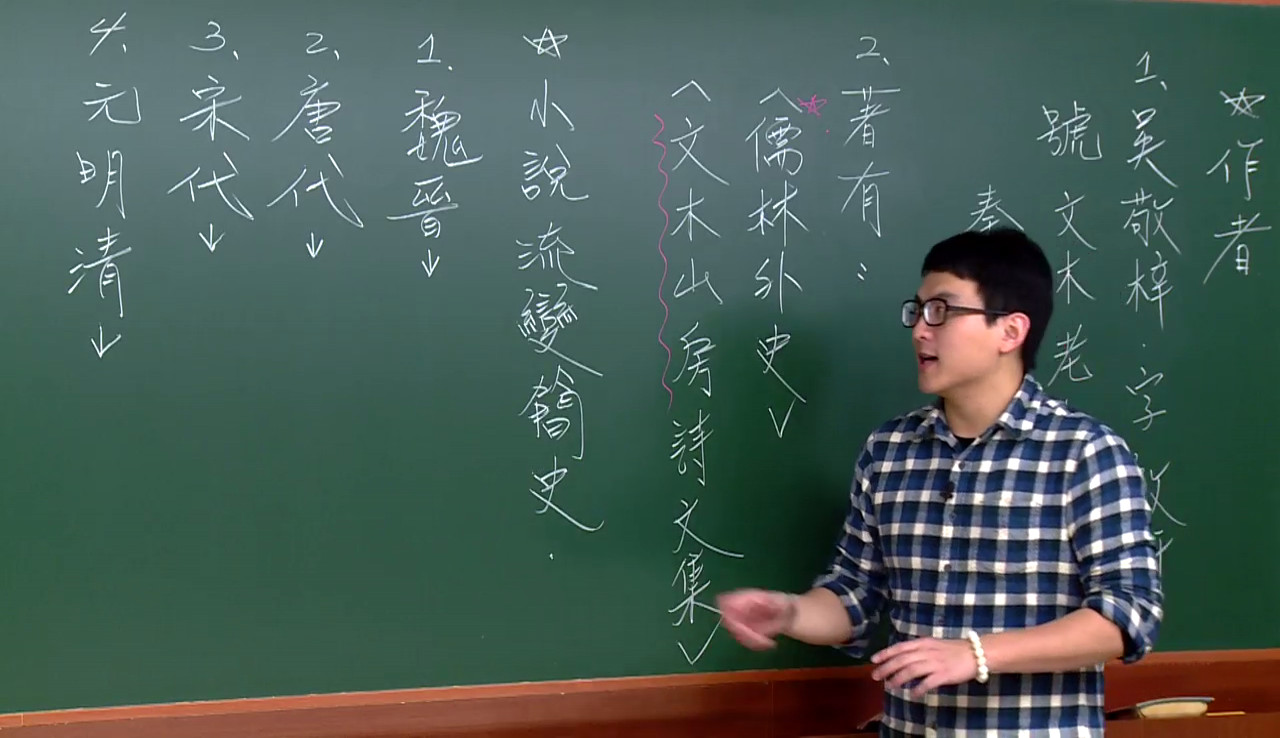 ☆作者
1、吳敬梓.字敏
號文木老
秦
2、著有:
〈儒林外史〉
〈文木山房詩文集〉
☆小說流變簡史.
1、魏晉↓
2、唐代↓
3、宋代↓
4、元明清↓